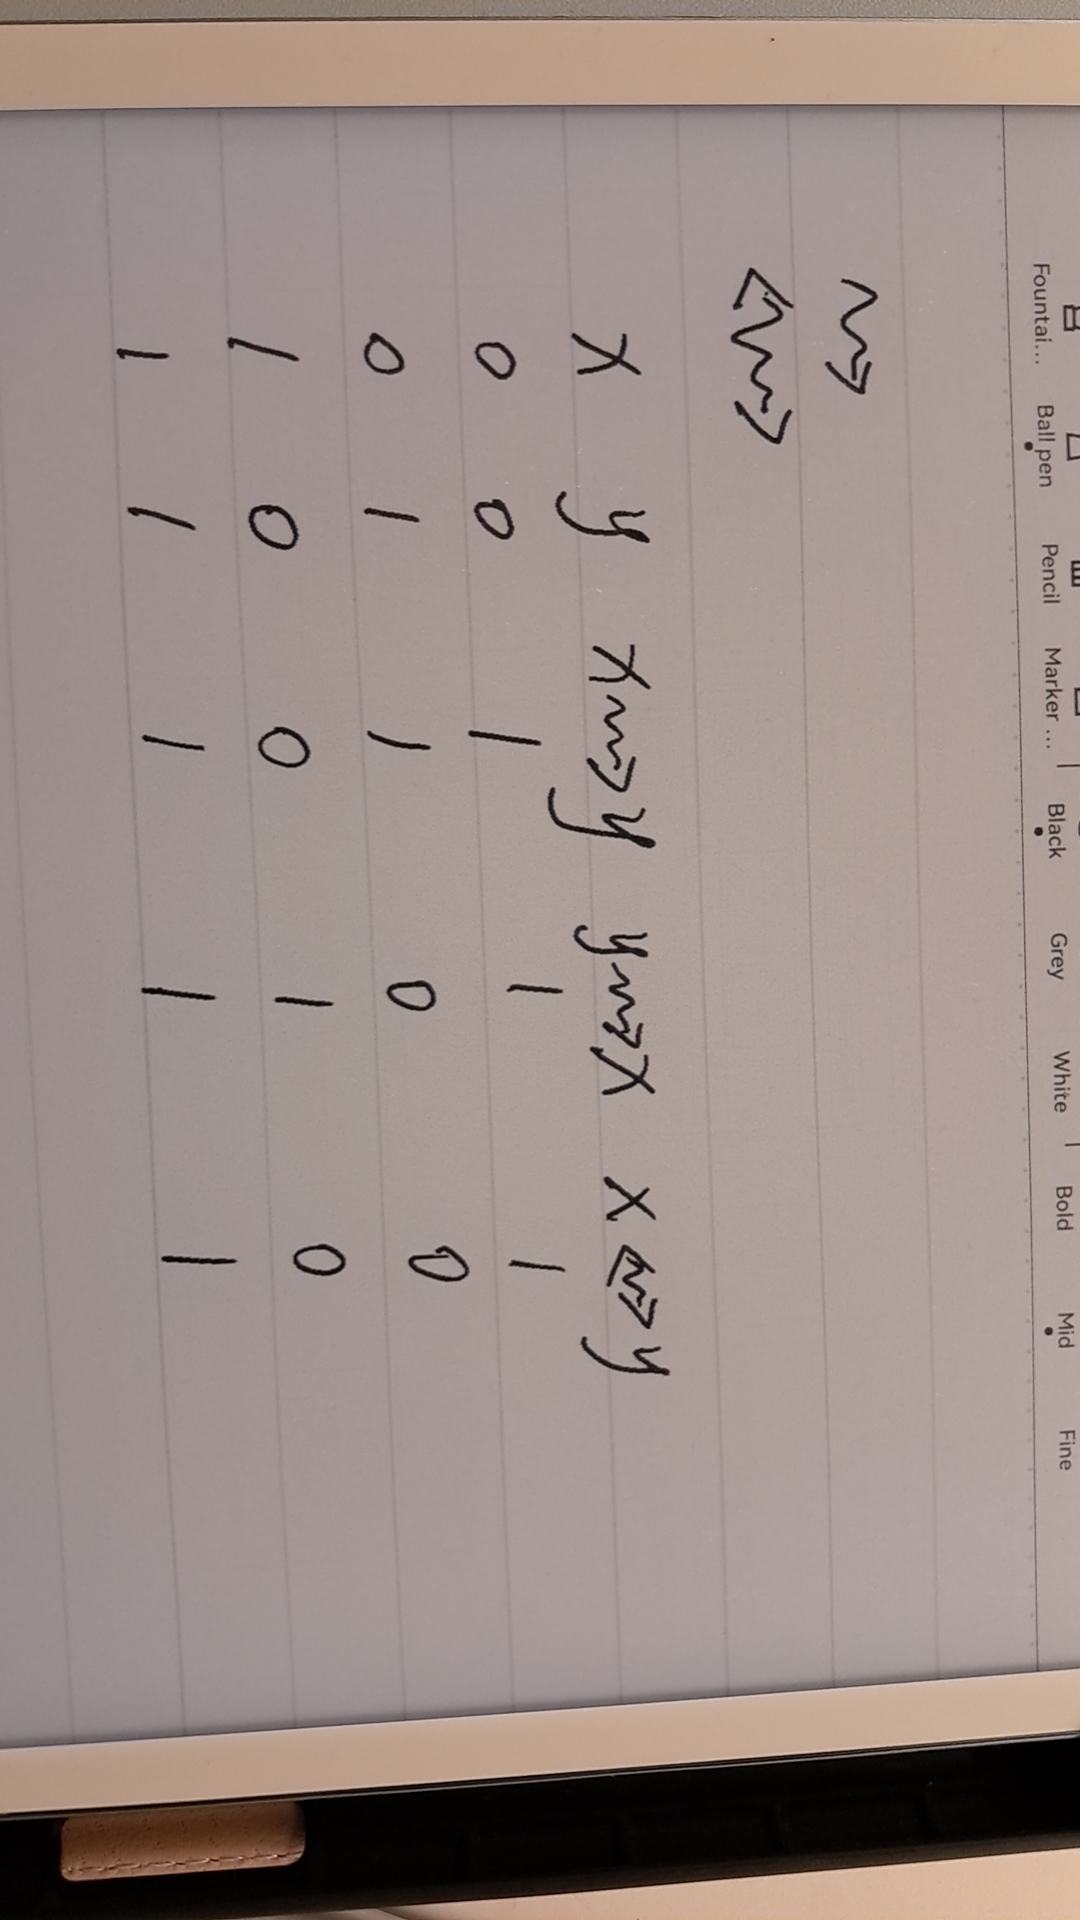 Fountai... Ball pen Pencil Marker ... Black Grey White Bold Mid Fine
⇝
↭
x y x⇝y y⇝x x↭y
0 0 1 1 1
0 1 1 0 0
1 0 0 1 0
1 1 1 1 1